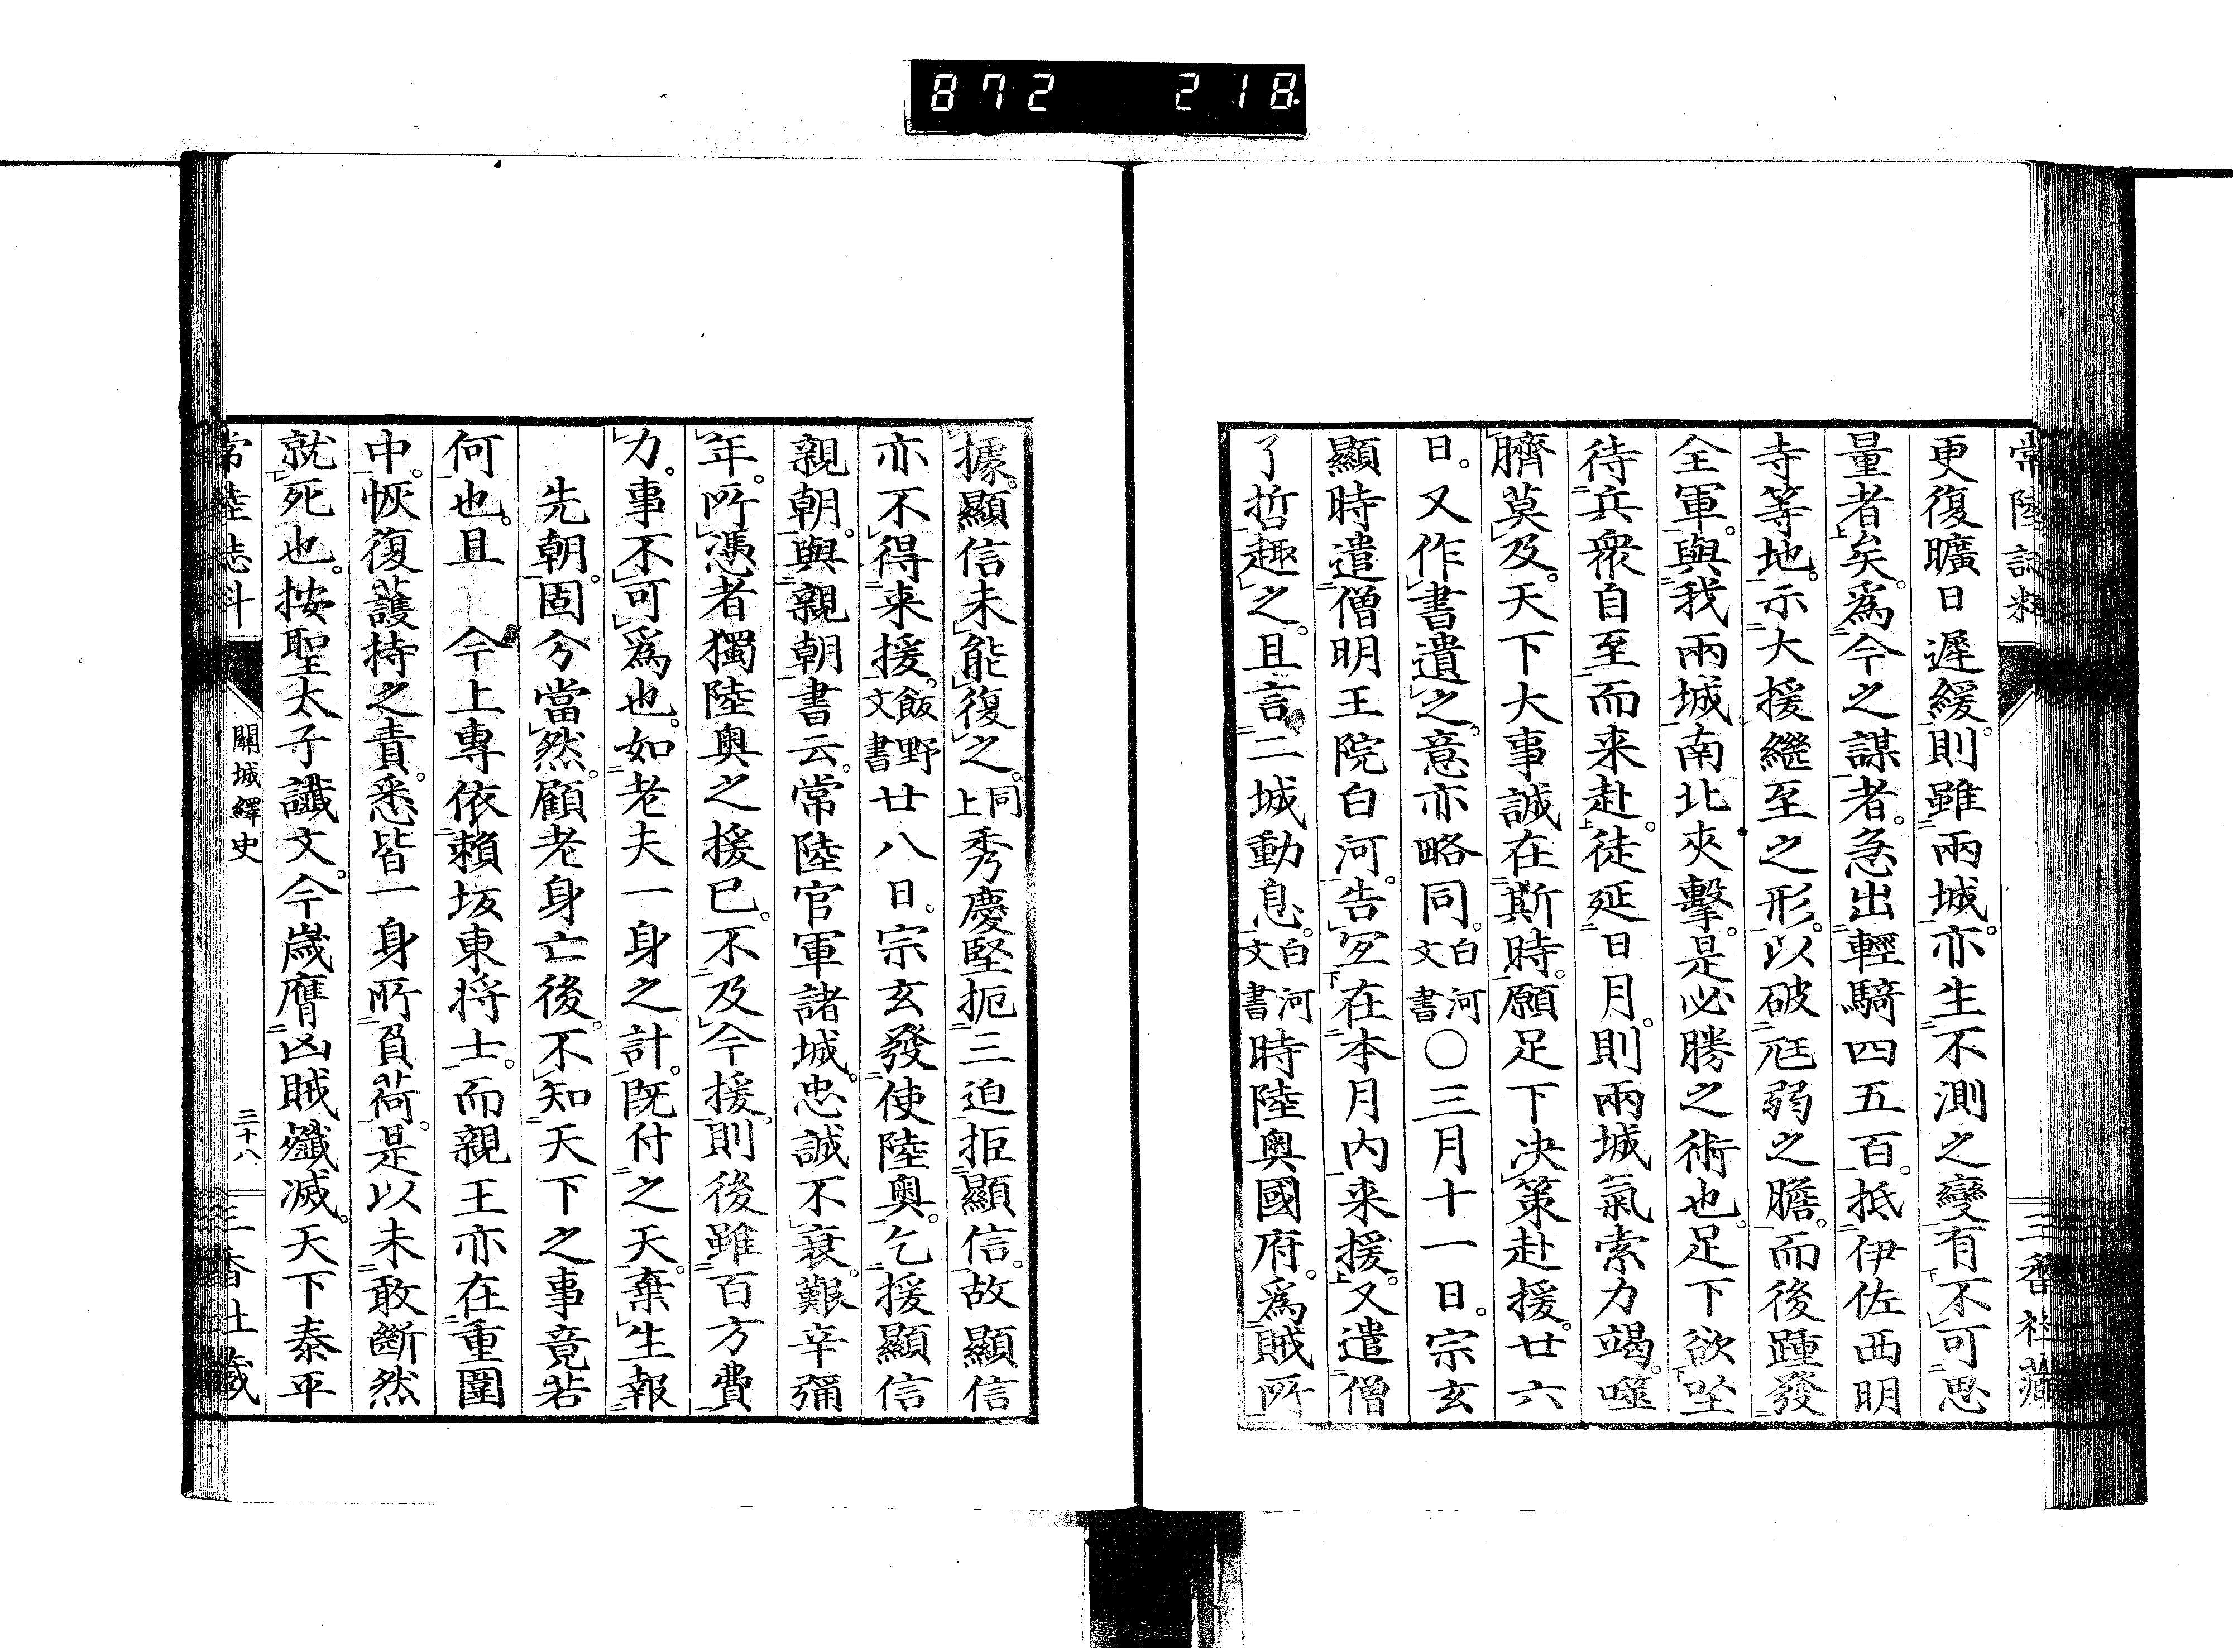 872 218
更復曠日遲緩。則雖兩城。亦生不測之變有不可思
量者矣。爲今之謀者。急出輕騎四五百。抵伊佐西明
寺等地。示大援繼至之形。以破尫弱之膽。而後踵發
全軍。與我兩城南北夾擊。是必勝之術也。足下欲坐
待兵衆自至而来赴。徒延日月。則兩城氣索力竭。噬
臍莫及。天下大事誠在斯時。願足下决策赴援。廿六
日。又作書遺之。意亦略同。白河文書○三月十一日。宗玄
顯時遣僧明王院白河。告冝在本月内来援。又遣僧
了哲趣之。且言二城動息。白河文書時陸奥國府。爲賊所
據。顯信未能復之。同上秀慶堅扼三迫拒顯信。故顯信
亦不得来援。飯野文書廿八日。宗玄發使陸奥。乞援顯信
親朝。與親朝書云。常陸官軍諸城。忠誠不衰。艱辛彌
年。所憑者獨陸奥之援已。不及今援。則後雖百方費
力。事不可爲也。如老夫一身之計。既付之天。棄生報
先朝。固分當然。顧老身亡後。不知天下之事竟若
何也。且 今上專依賴坂東将士。而親王亦在重圍
中。恢復護持之責。悉皆一身所負荷。是以未敢斷然
就死也。按聖太子讖文。今歳膺凶賊殲滅。天下泰平
關城繹史
三十八